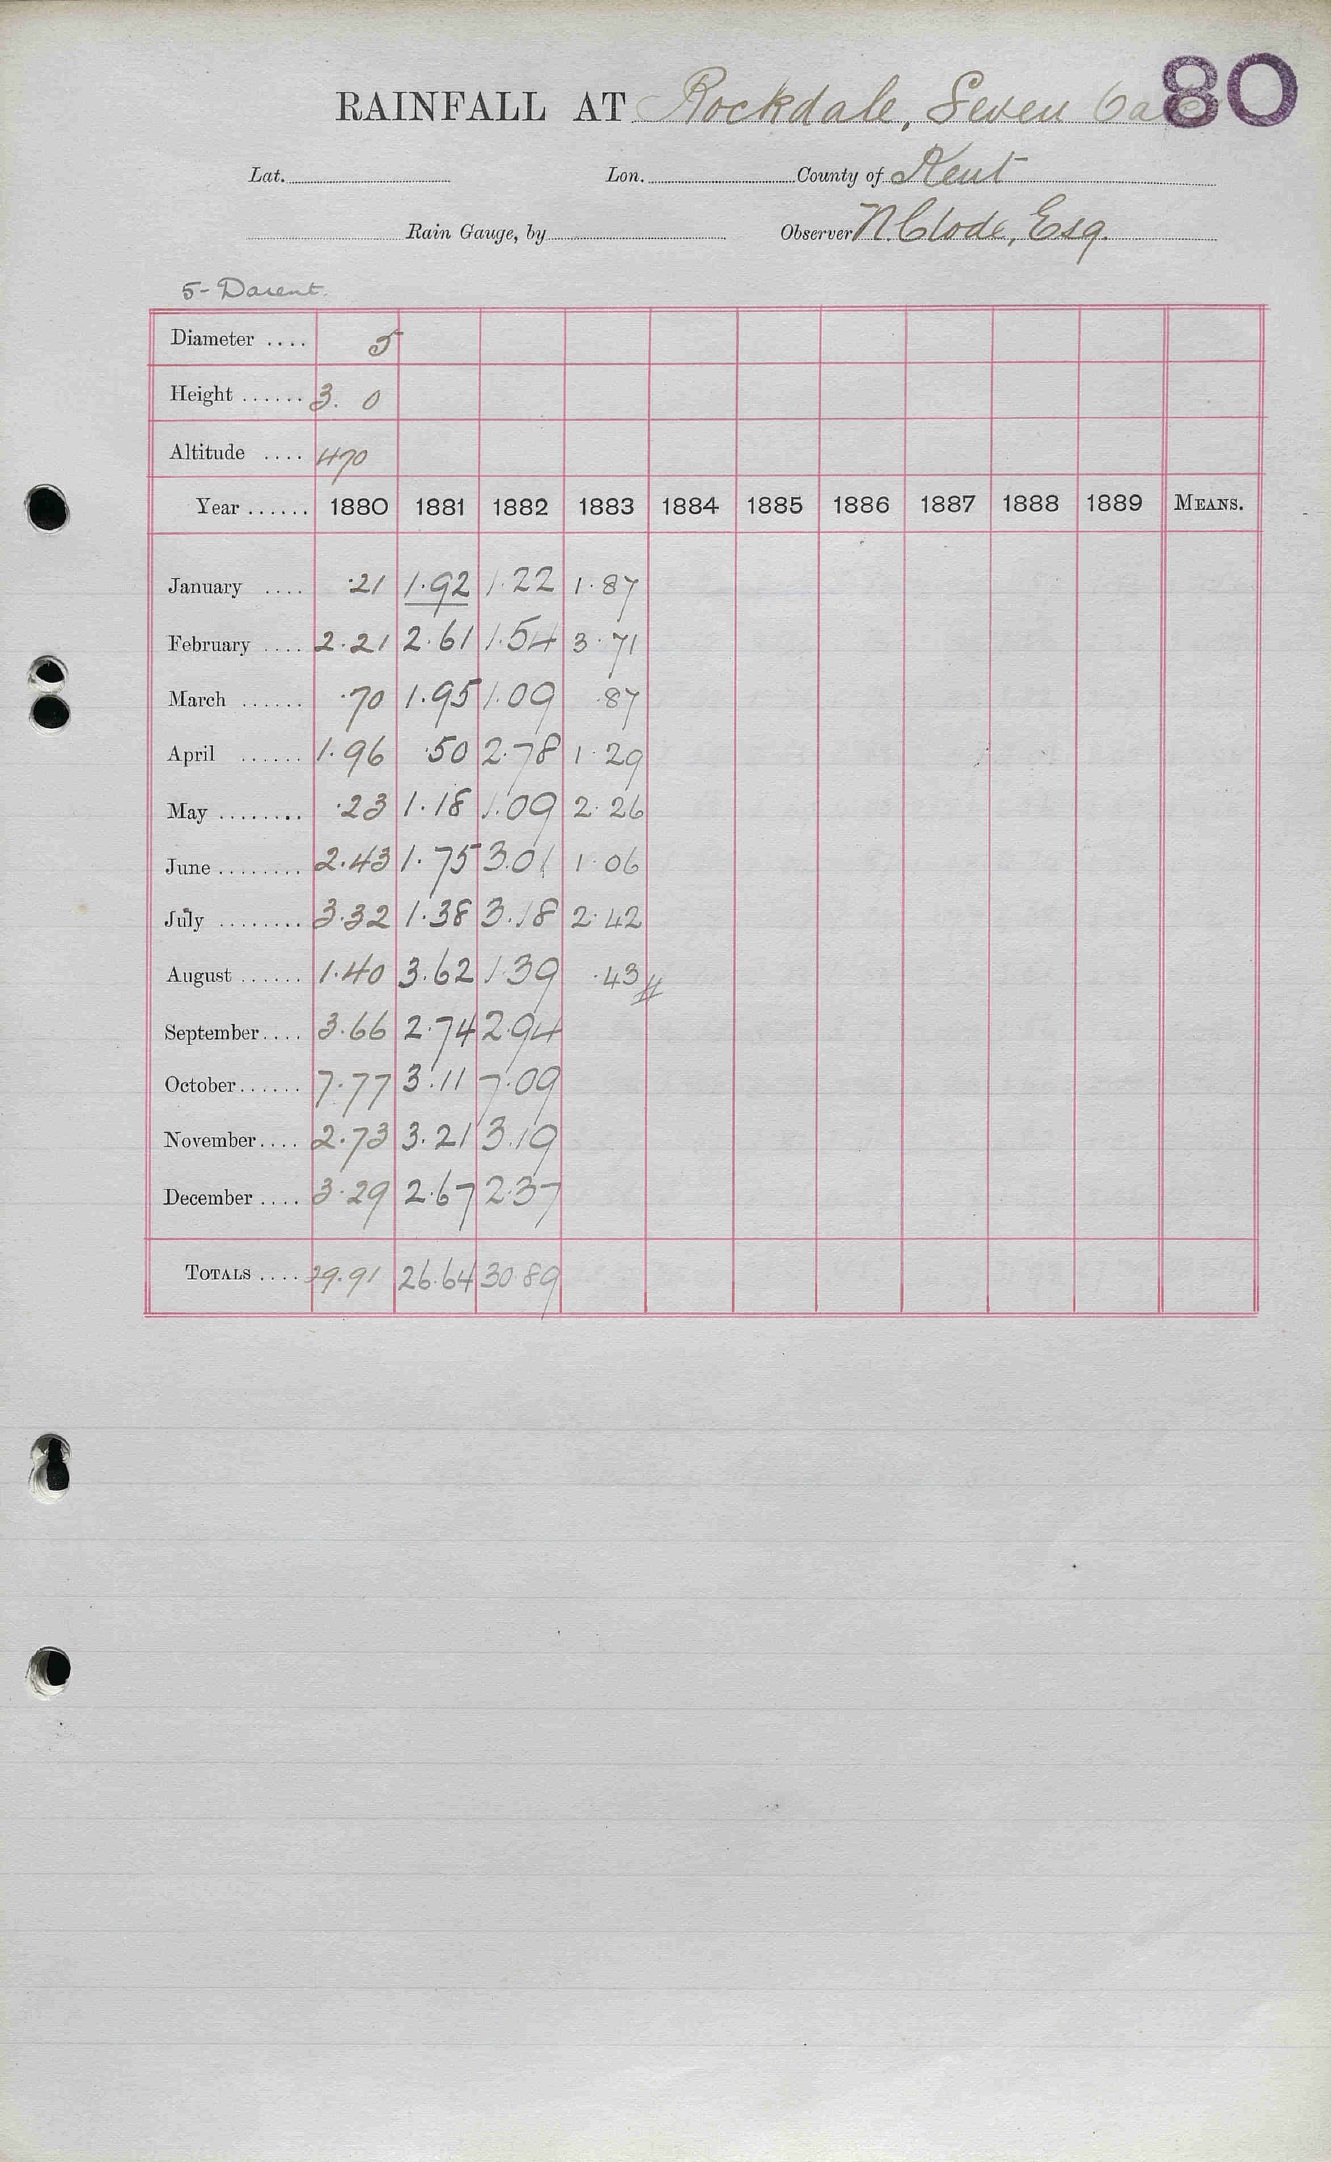 80
RAINFALL AT Rockdale, Seven Oaks
Lat. Lon. County of Kent
Rain Gauge, by Observer N. Clode, Esq.
5- Darent.
Diameter .... 5
Height ...... 3. 0
Altitude .... 470
Year ...... 1880 1881 1882 1883 1884 1885 1886 1887 1888 1889 MEANS.
January .... ·21 1·92 1·22 1·87
February .... 2·21 2·61 1·54 3·71
March ...... ·70 1·95 1·09 ·87
April ...... 1·96 ·50 2·78 1·29
May ........ ·23 1·18 1·09 2·26
June ........ 2·43 1·75 3·01 1·06
July ........ 3·32 1·38 3·18 2·42
August ...... 1·40 3·62 1·39 ·43 //
September .... 3·66 2·74 2·94
October ...... 7·77 3·11 7·09
November .... 2·73 3·21 3·19
December .... 3·29 2·67 2·37
TOTALS .... 29·91 26·64 30·89